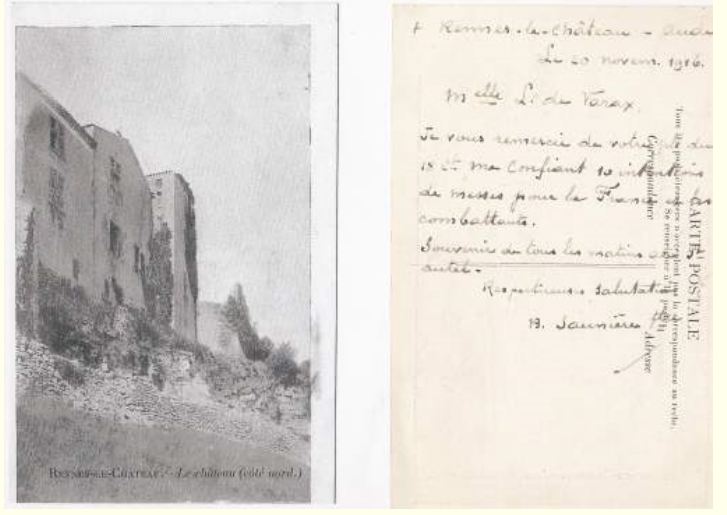 RENNES-LE-CHÂTEAU. - Le château (côté nord.)
+ Rennes-le-Château - Aude
Le 20 novem. 1916.
Melle L. de Varax.
Je vous remercie de votre du
18 ct me confiant 10 intentions
de messes pour la France et les
combattants.
Souvenir de tous les matins au St
autel.
Respectueuses Salutations
B. Saunière ptre
CARTE POSTALE
Tous les pays étrangers n'acceptent pas la correspondance au recto.
Se renseigner à la poste
Correspondance
Adresse